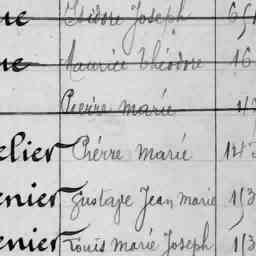 Isidore Joseph
Maurice Théodore
Pierre Marie
elier Piérre Marie 143
enier Gustave Jean Marie
enier Louis Marie Joseph